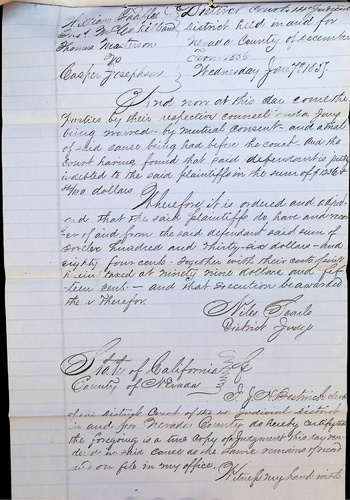 William
District Court 14th Judicial
District held in and for
Thomas
Nevada County of December
vs
Term 1856
Casper Josephson
Wednesday Jany 7th 1857.
And now at this day come the
parties by their respective counsel and a Jury
being waived by mutual consent and a trial
of said cause being had before the court And the
court having found that said defendant is justly
indebted to the said plaintiffs in the sum of
84/100 dollars Wherefore, it is ordered and adjud-
ed that the said plaintiffs do have and recov-
er of and from the said defendant said sum of
hundred and thirty-six dollars and
eighty four cents together with their costs
taxed at ninety nine dollars and fif-
teen cents and that execution be awarded
therefor.
Niles Searls
District Judge
State of California
County of Nevada
I, J. H. Bostwick clerk
of the district Court of the 14 Judicial district
in and for Nevada County do hereby certify that
the foregoing is a true Copy of Judgment this day ren-
dered in said cause as the same remains of record
and on file in my office.
Witness my hand